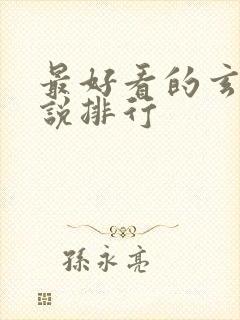 最好看的玄
說排行
孫永亮